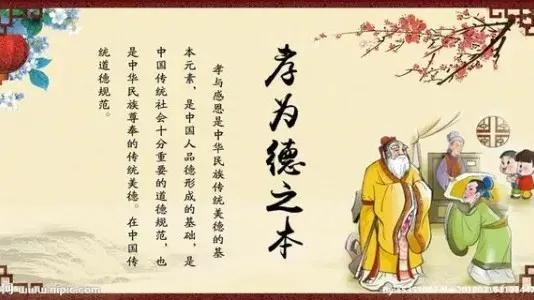 孝为德之本
孝与感恩是中华民族传统美德的基
本元素，是中国人品德形成的基础，是
中国传统社会十分重要的道德规范，也
是中华民族尊奉的传统美德。在中国传
统道德规范。
网 www.nipic.com